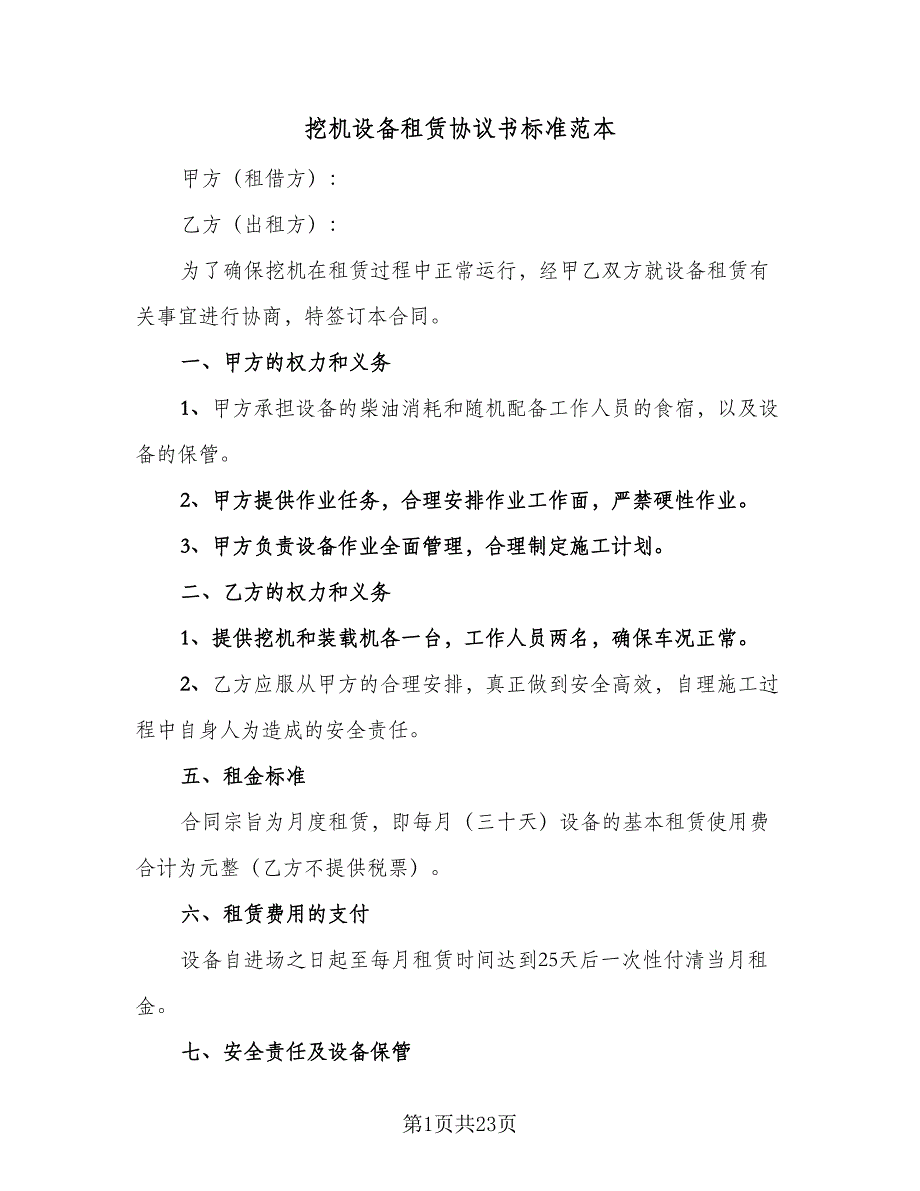 挖机设备租赁协议书标准范本
甲方（租借方）：
乙方（出租方）：
为了确保挖机在租赁过程中正常运行，经甲乙双方就设备租赁有
关事宜进行协商，特签订本合同。
一、甲方的权力和义务
1、甲方承担设备的柴油消耗和随机配备工作人员的食宿，以及设
备的保管。
2、甲方提供作业任务，合理安排作业工作面，严禁硬性作业。
3、甲方负责设备作业全面管理，合理制定施工计划。
二、乙方的权力和义务
1、提供挖机和装载机各一台，工作人员两名，确保车况正常。
2、乙方应服从甲方的合理安排，真正做到安全高效，自理施工过
程中自身人为造成的安全责任。
五、租金标准
合同宗旨为月度租赁，即每月（三十天）设备的基本租赁使用费
合计为元整（乙方不提供税票）。
六、租赁费用的支付
设备自进场之日起至每月租赁时间达到25天后一次性付清当月租
金。
七、安全责任及设备保管
第1页共23页